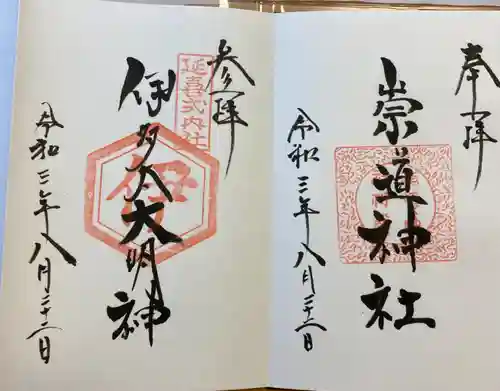 奉拝
崇道神社
令和三年八月二十二日
参拝
延喜式内社
伊多太大明神
令和三年八月二十二日